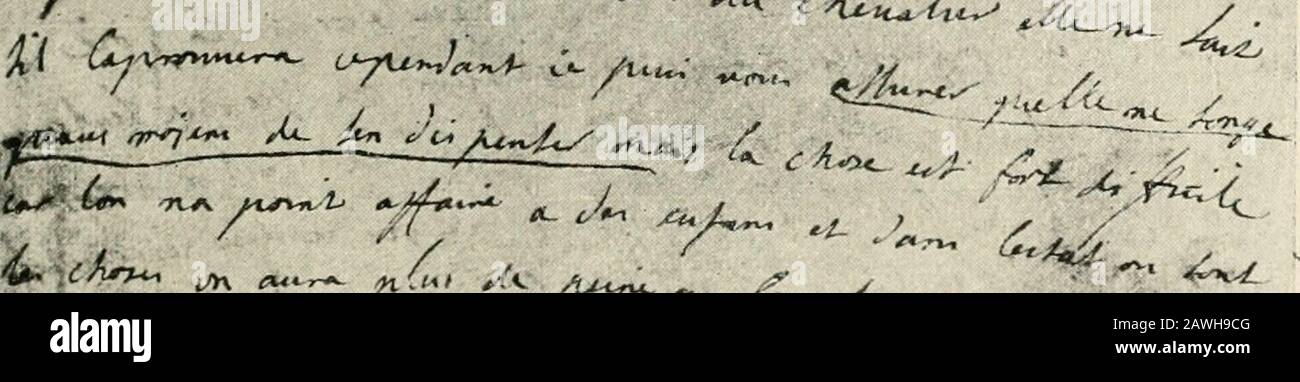 du chevalier elle ne sait
sil lapprouuera cependant ie puis vous assurer quelle ne songe
quaux moiens de sen dispenser mais la chose est fort difficile
car lon na point affaire a des enfans et dans lestat ou sont
les choses on aura plus de peine
a
alamy
Image ID: 2AWH9CG
www.alamy.com